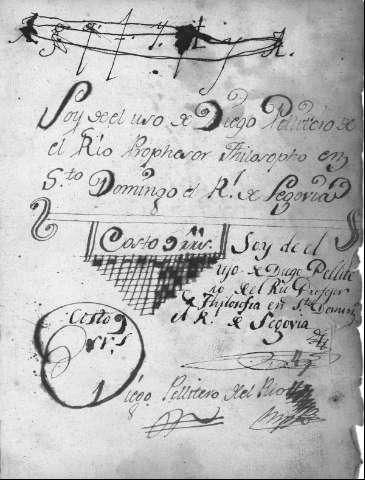 Soy de el uso de Diego Pellitero de
el Rio Prophesor Philosopho en
S.to Domingo el R.l de Segovia
Costo 9 rr.s
Soy de el
uso de Diego Pellite
ro de el Rio Profesor
de Philosofia en S.to Domin
R. de Segovia
Costo 9
rr.s
Diego Pellitero del Rio